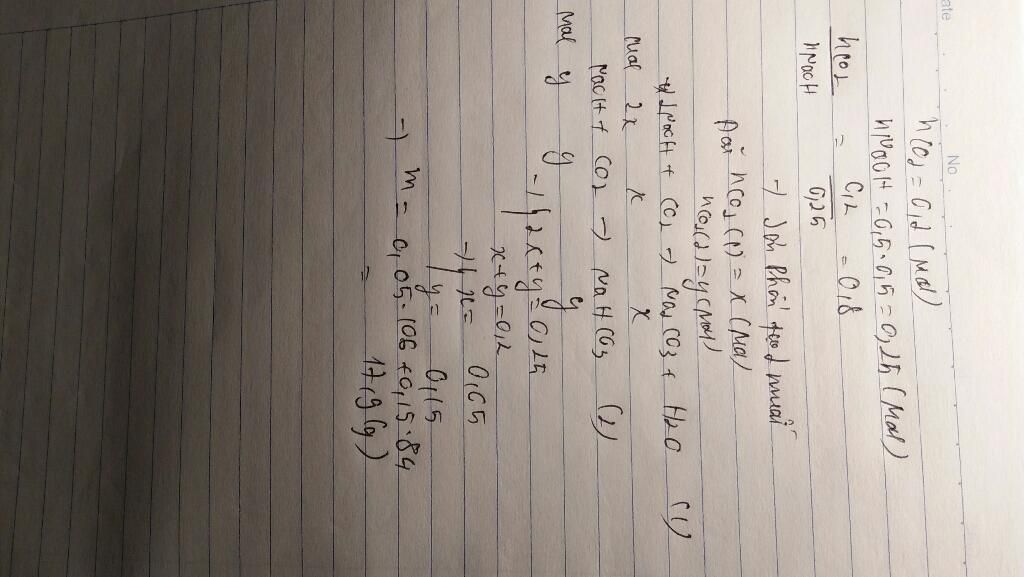 ate
No.
nCO2 = 0,2 (mol)
nNaOH = 0,5.0,5 = 0,25 (mol)
nCO2 / nNaOH = 0,2 / 0,25 = 0,8
→ Sản phẩm tạo 2 muối
Đặt nCO2 (1) = x (mol)
nCO2 (2) = y (mol)
2NaOH + CO2 → Na2CO3 + H2O (1)
mol 2x x x
NaOH + CO2 → NaHCO3 (2)
mol y y y
→ { 2x + y = 0,25
x + y = 0,2
→ { x = 0,05
y = 0,15
→ m = 0,05.106 + 0,15.84
= 17,9 (g)